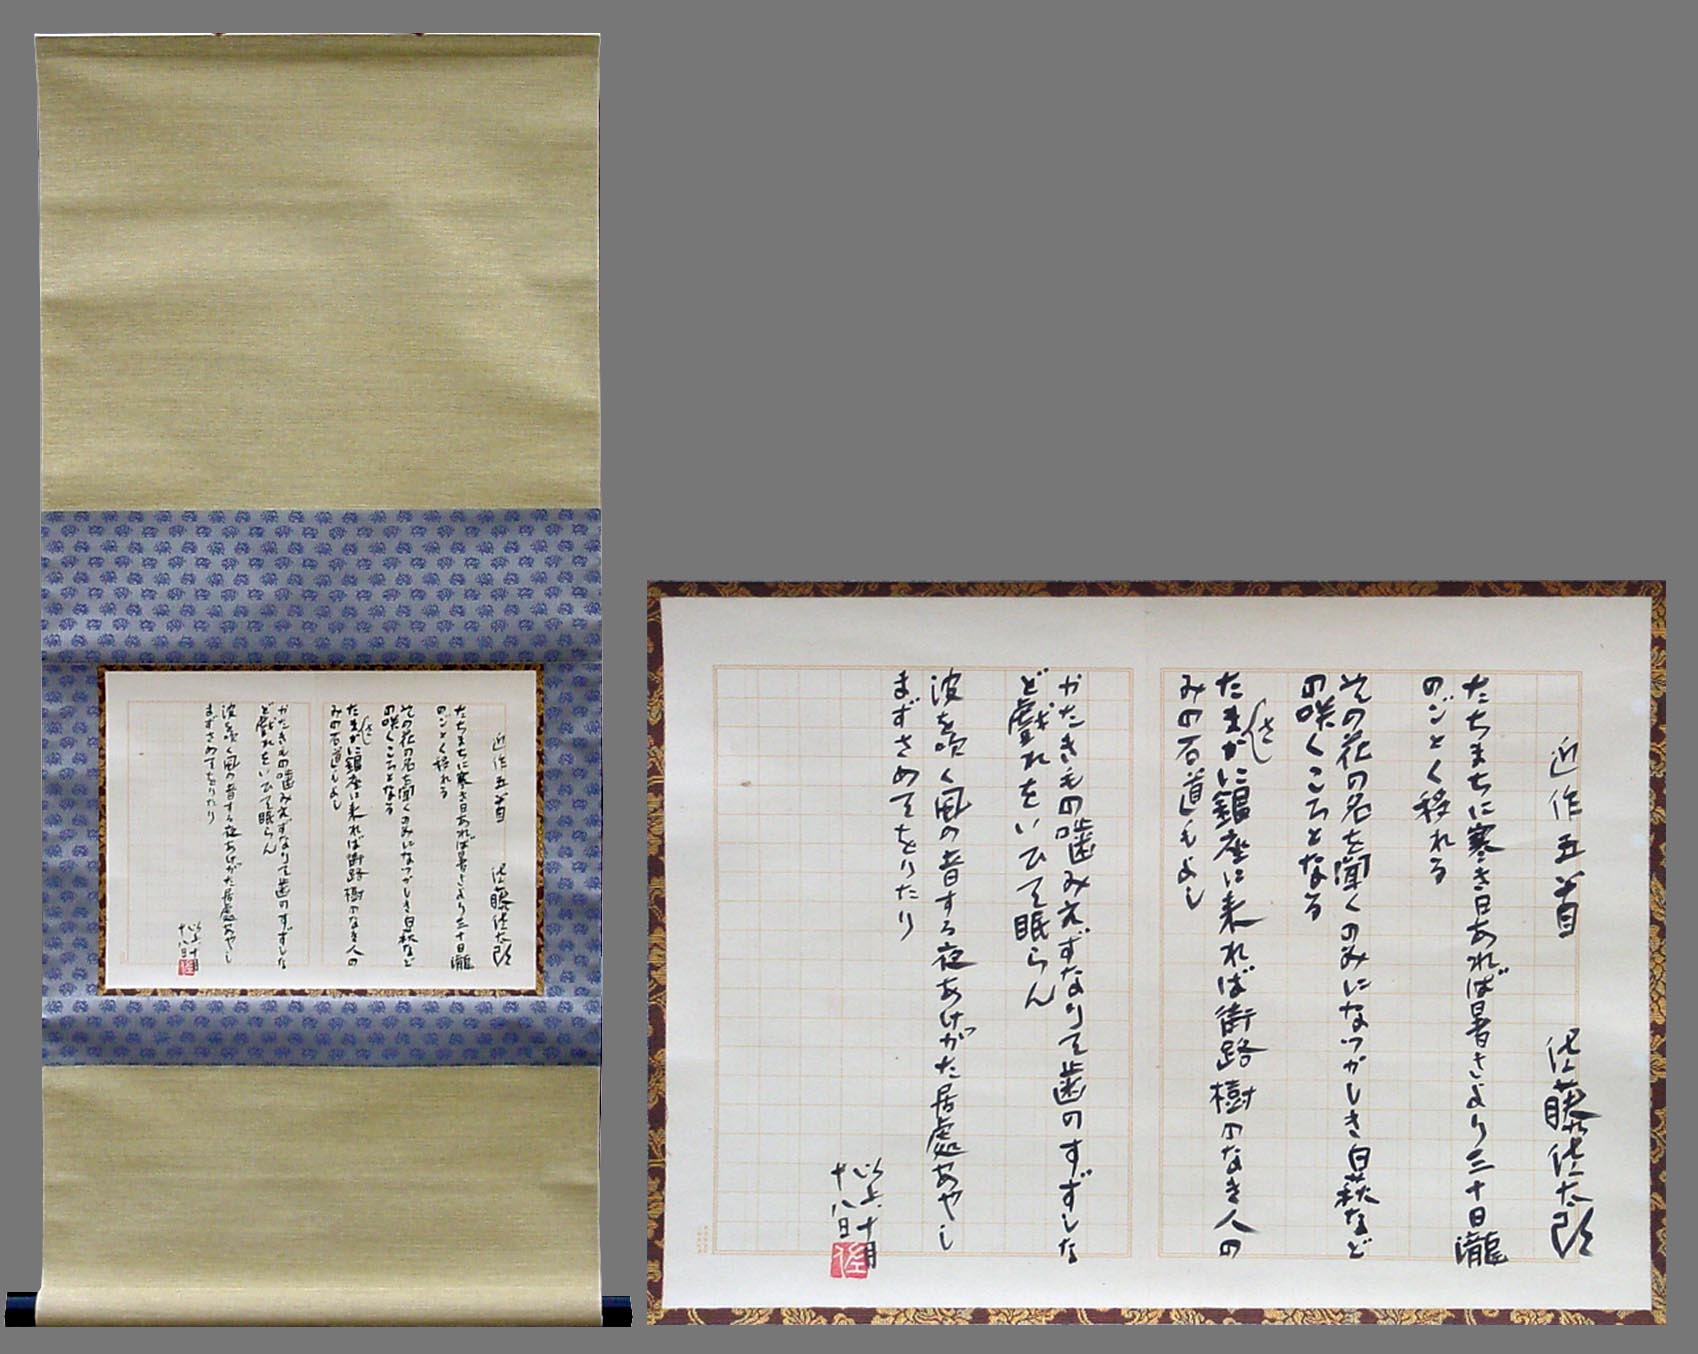 近作五首 佐藤佐太郎
たちまちに寒き日あれば暑さより三十日瀧
のごとく移れる
その花の名を聞くのみになつかしき白萩など
の咲くころとなる
たまさかに銀座に来れば街路樹のなき人の
みの石道もよし
かたきもの噛みえずなりて歯のすずしな
ど戯れをいひて眠らん
波を吹く風の音する夜あけがた居處あやし
まずさめてをりたり
以上十月
十八日
佐